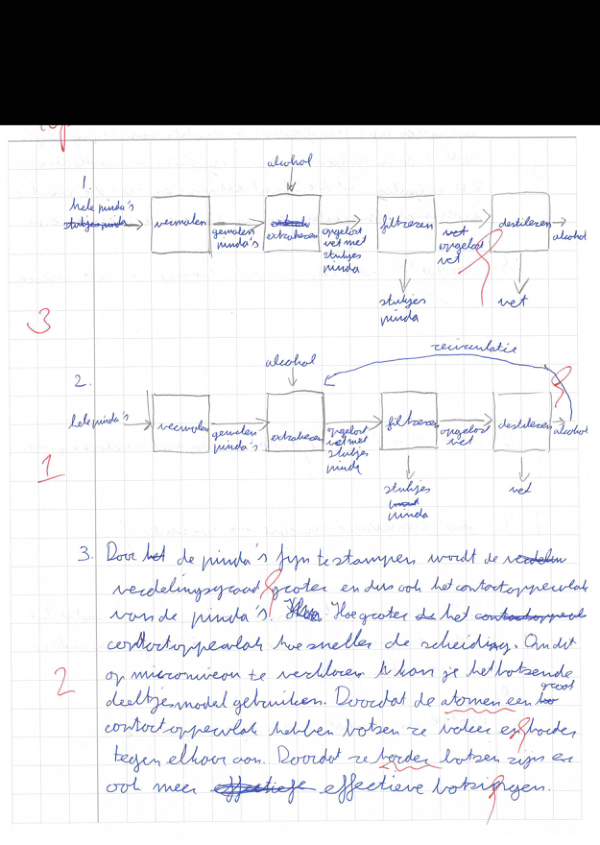 top
alcohol
1.
hele pinda's
stukjes pinda
vermalen
gemalen
pinda's
extraheren
opgelost
vet met
stukjes
pinda
filtreren
vet
opgelost
vet
destileren
alcohol
stukjes
pinda
vet
3
recirculatie
alcohol
2.
hele pinda's
vermalen
gemalen
pinda's
extraheren
opgelost
vet met
stukjes
pinda
filtreren
opgelost
vet
destileren
alcohol
1
stukjes
pinda
vet
3. Door het de pinda's fijn te stampen wordt de verdelin
verdelingsgraad groter en dus ook het contactoppervlak
van de pinda's. Hoe groter de het contactopperv
contactoppervlak hoe sneller de scheiding. Om dit
op microniveau te verklaren kan je het botsende
2
deeltjesmodel gebruiken. Doordat de atomen een groot
contactoppervlak hebben botsen ze vaker en harder
tegen elkaar aan. Doordat ze harder botsen zijn er
ook meer effectiefe effectieve botsingen.